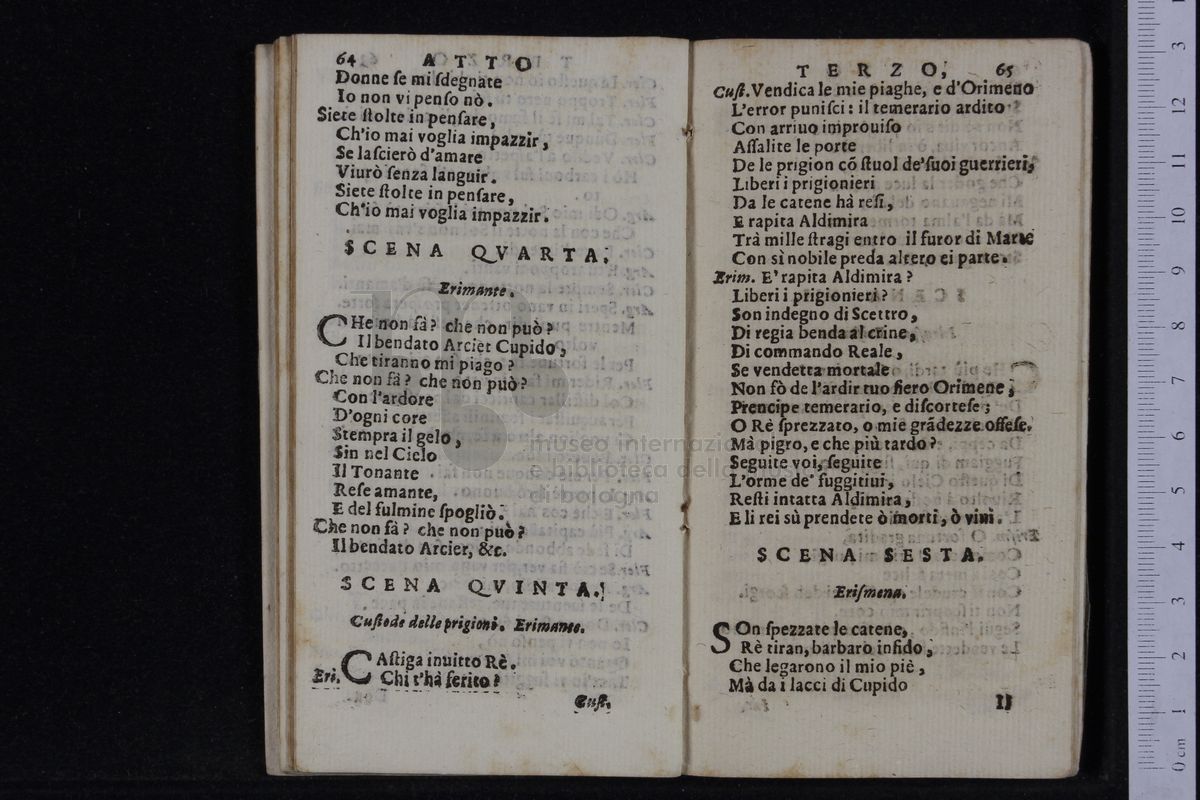 64 ATTO
Donne ſe mi ſdegnate
Io non vi penſo nò.
Siete ſtolte in penſare,
Ch'io mai voglia impazzir,
Se laſcierò d'amare
Viurò ſenza languir.
Siete ſtolte in penſare,
Ch'io mai voglia impazzir.
SCENA QVARTA.
Erimante.
CHe non fà? che non può?
Il bendato Arcier Cupido,
Che tiranno mi piago?
Che non fà? che non può?
Con l'ardore
D'ogni core
Stempra il gelo,
Sin nel Cielo
Il Tonante
Reſe amante,
E del fulmine ſpogliò.
Che non fà? che non può?
Il bendato Arcier, &c.
SCENA QVINTA.
Cuſtode delle prigioni. Erimante.
CAſtiga inuitto Rè.
Eri. Chi t'hà ferito?
Cuſt.
TERZO, 65
Cuſt. Vendica le mie piaghe, e d'Orimeno
L'error puniſci: il temerario ardito
Con arriuo improuiſo
Aſſalite le porte
De le prigion cõ ſtuol de' ſuoi guerrieri,
Liberi i prigionieri
Da le catene hà reſi,
E rapita Aldimira
Trà mille ſtragi entro il furor di Marte
Con sì nobile preda altero ei parte.
Erim. E' rapita Aldimira?
Liberi i prigionieri?
Son indegno di Scettro,
Di regia benda al crine,
Di commando Reale,
Se vendetta mortale
Non fò de l'ardir tuo fiero Orimene;
Prencipe temerario, e diſcorteſe;
O Rè ſprezzato, o mie grãdezze offeſe.
Mà pigro, e che più tardo?
Seguite voi, ſeguite
L'orme de' fuggitiui,
Reſti intatta Aldimira,
E li rei sù prendete ò morti, ò viui.
SCENA SESTA.
Eriſmena.
SOn ſpezzate le catene,
Rè tiran, barbaro infido,
Che legarono il mio piè,
Mà da i lacci di Cupido
Il
museo internazio
e biblioteca della musica
di bologna